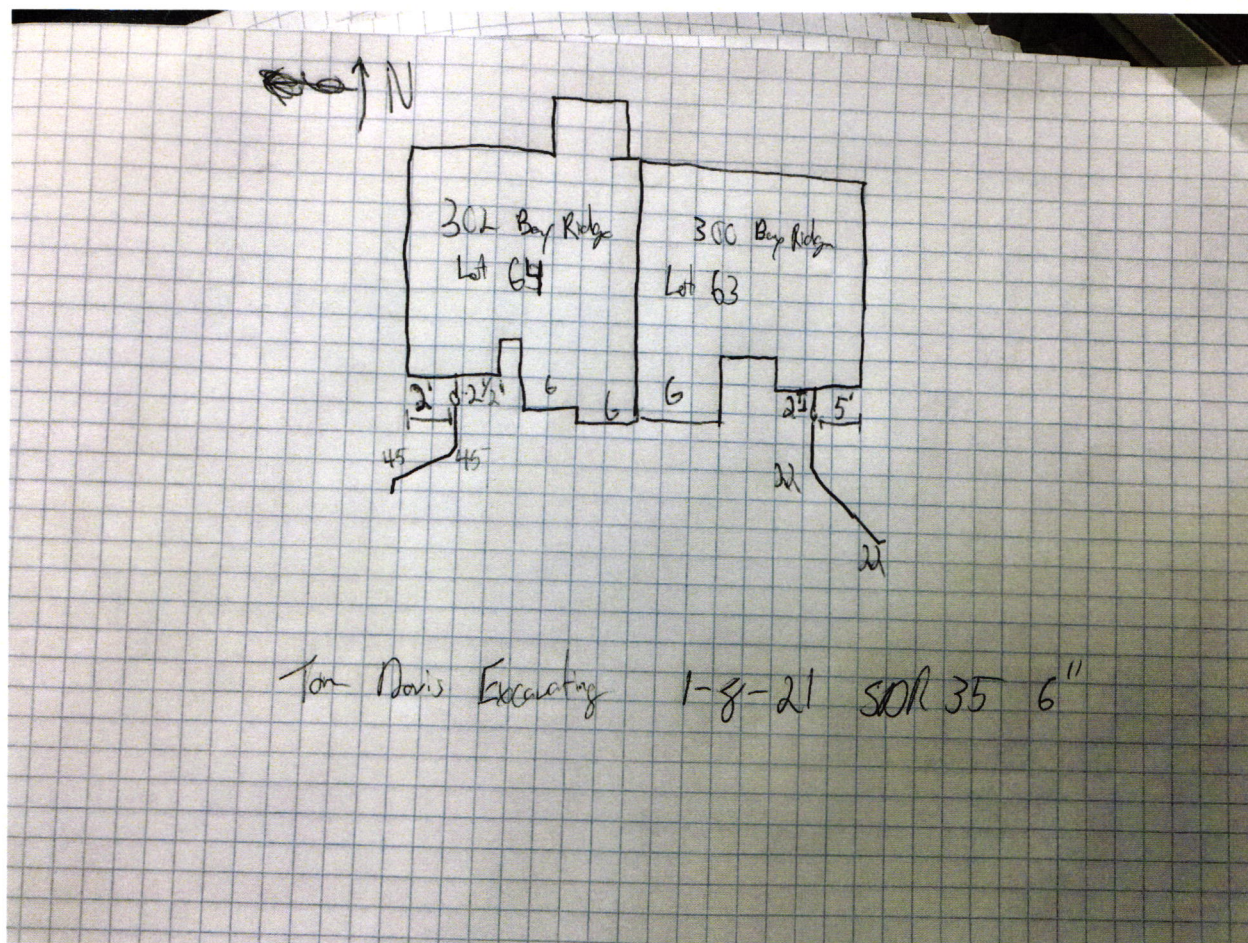 N
302 Bay Ridge 300 Bay Ridge
Lot 64 Lot 63
2' 2½' 6 6 G 2' 5'
45 45 22
22
Tom Davis Excavating 1-8-21 SDR 35 6"